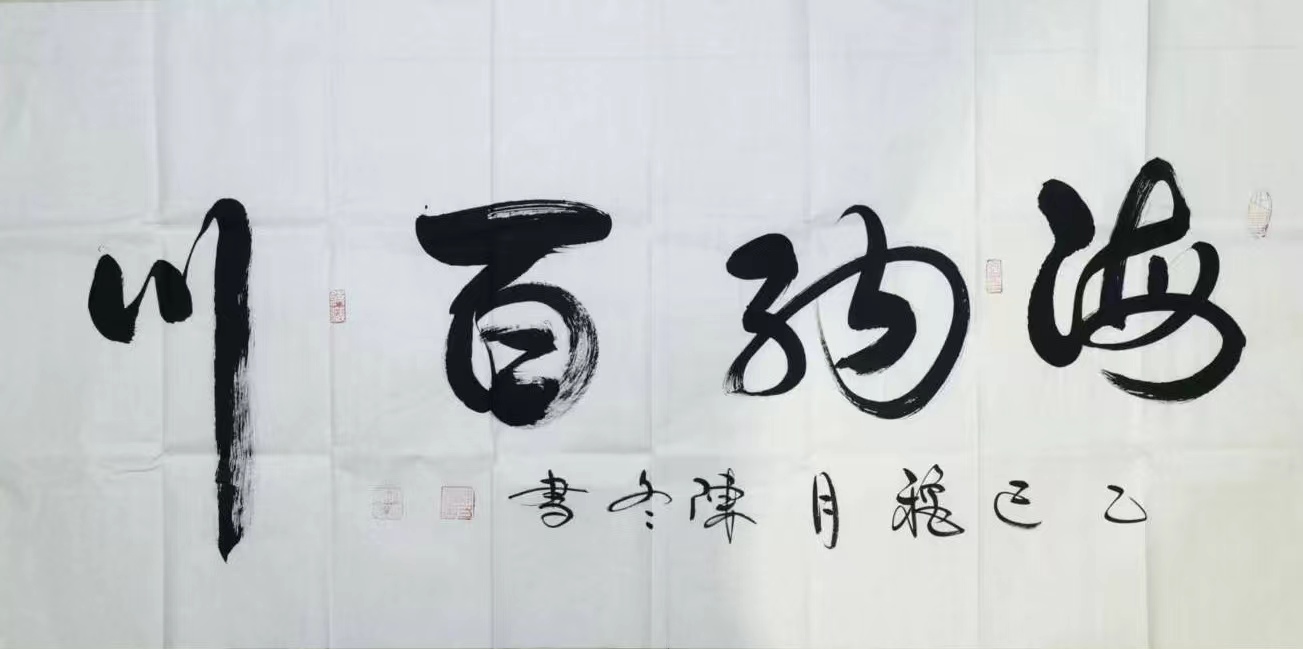 海納百川
乙巳秋月陳冬書